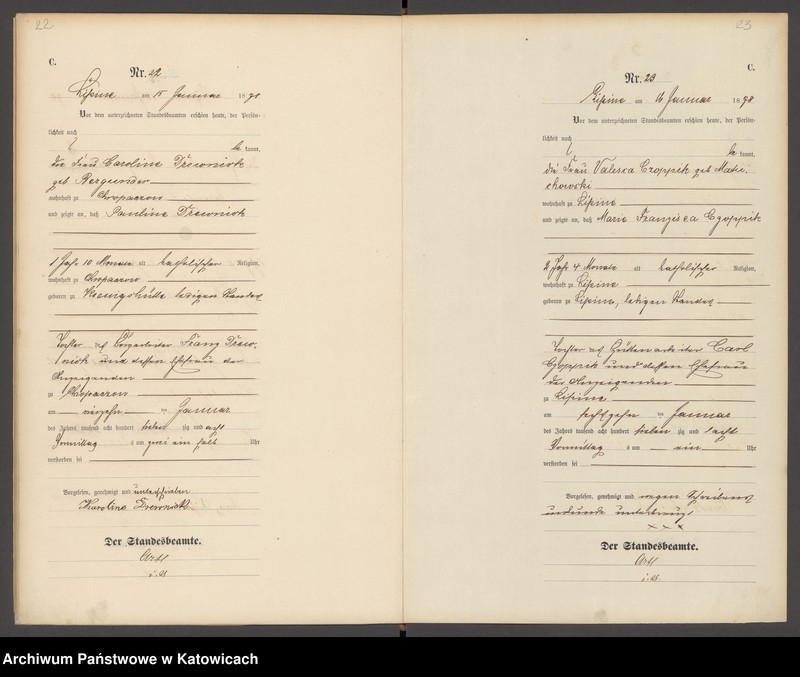 22
C.
Nr. 22
Lipine am 15 Januar 1898
Vor dem unterzeichneten Standesbeamten erschien heute, der Persön-
lichkeit nach
be kannt,
die Frau Caroline
geb Bergunder
wohnhaft zu Chropaczow
und zeigte an, daß Pauline
1 Jahr 10 Monate alt katholischer Religion,
wohnhaft zu Chropaczow
geboren zu Koenigshütte ledigen Standes
Tochter des Franz
und dessen Ehefrau der
Anzeigenden
zu Chropaczow
am vierzehn ten Januar
des Jahres tausend acht hundert neun zig und acht
Vormittag s um zwei ein halb Uhr
verstorben sei
Vorgelesen, genehmigt und unterschrieben
Karoline
Der Standesbeamte.
23
C.
Nr. 23
Lipine am 16 Januar 1898
Vor dem unterzeichneten Standesbeamten erschien heute, der Persön-
lichkeit nach
be kannt,
die Frau Valesca Czoppik geb
wohnhaft zu Lipine
und zeigte an, daß Marie Franzisca Czoppik
2 Jahr 4 Monate alt katholischer Religion,
wohnhaft zu Lipine
geboren zu Lipine, ledigen Standes
Tochter des Hüttenarbeiter Carl
Czoppik und dessen Ehefrau
der Anzeigenden
zu Lipine
am sechzehn ten Januar
des Jahres tausend acht hundert neun zig und acht
Vormittag s um ein Uhr
verstorben sei
Vorgelesen, genehmigt und wegen Schreibens
unkunde unterkreuzt
x x x
Der Standesbeamte.
Archiwum Państwowe w Katowicach